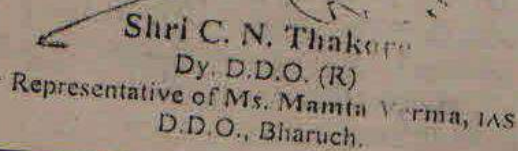 Shri C. N. Thakore
Dy. D.D.O. (R)
Representative of Ms. Mamta Verma, IAS
D.D.O., Bharuch.